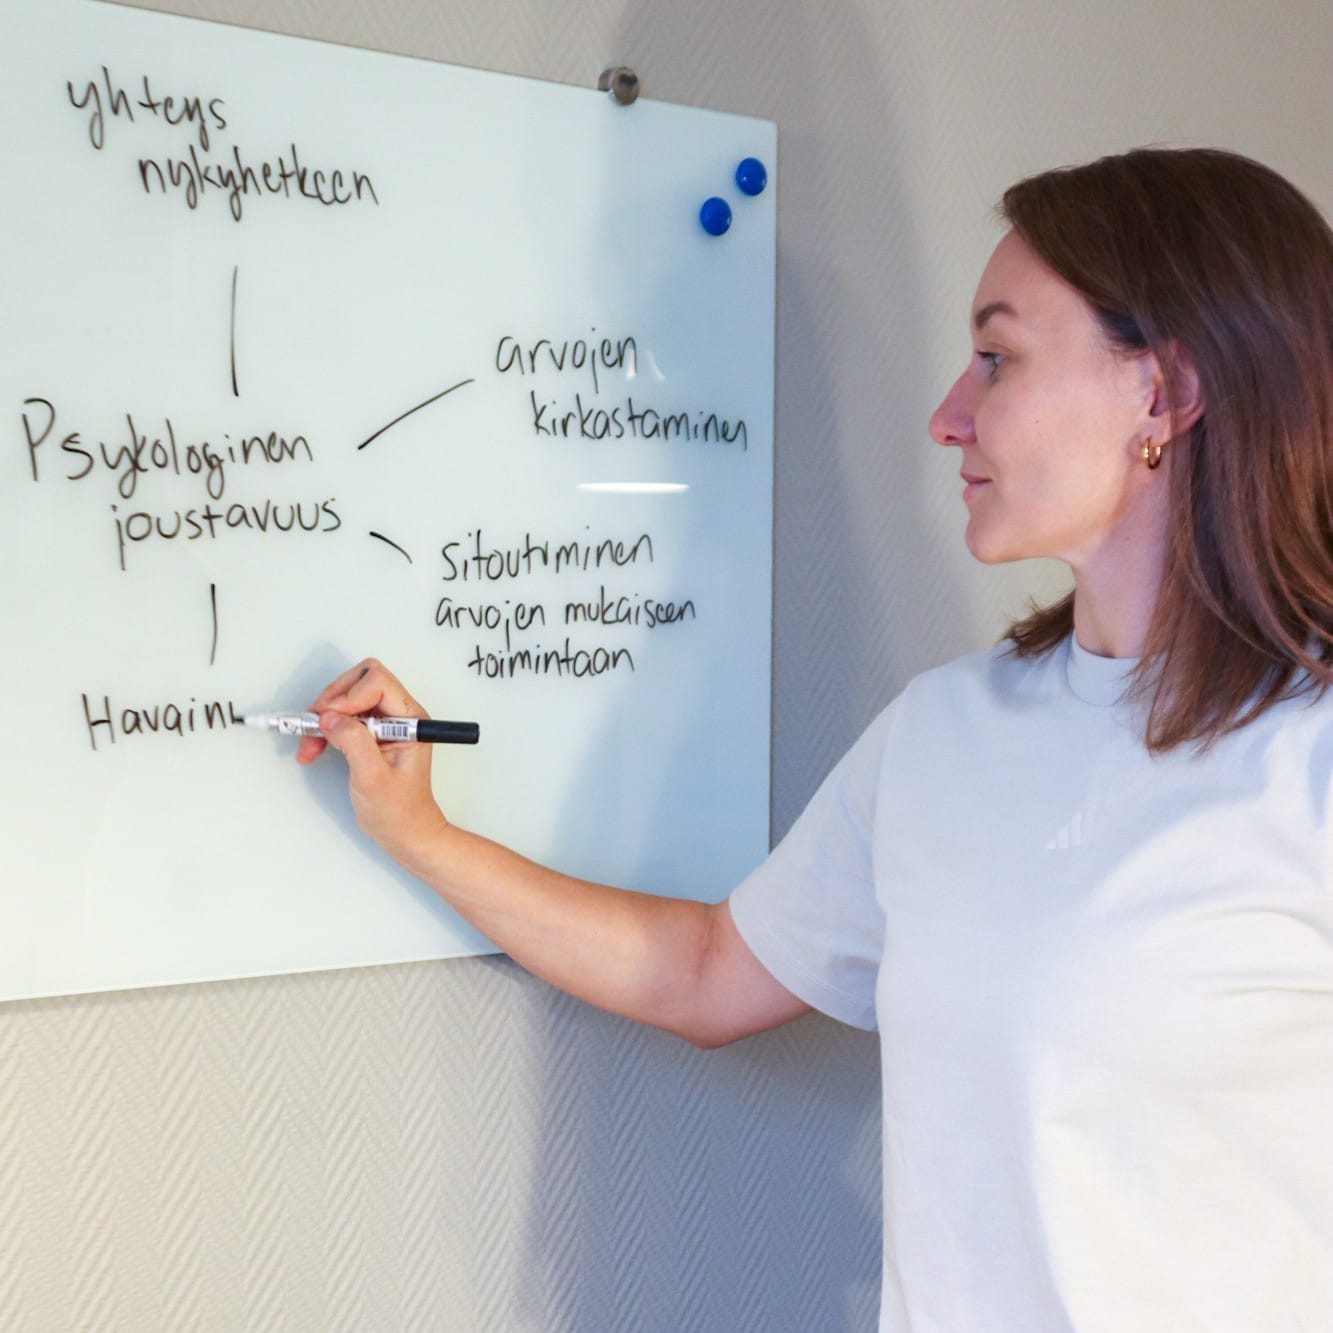 yhteys
nykyhetkeen
Psykologinen
joustavuus
arvojen
kirkastaminen
sitoutuminen
arvojen mukaiseen
toimintaan
Havain